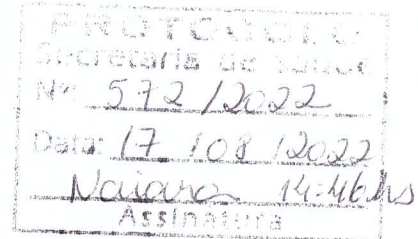 PROTOCOLO
Secretaria de Saúde
Nº 572/2022
Data: 17/08/2022
Naiara 14:46hs
Assinatura